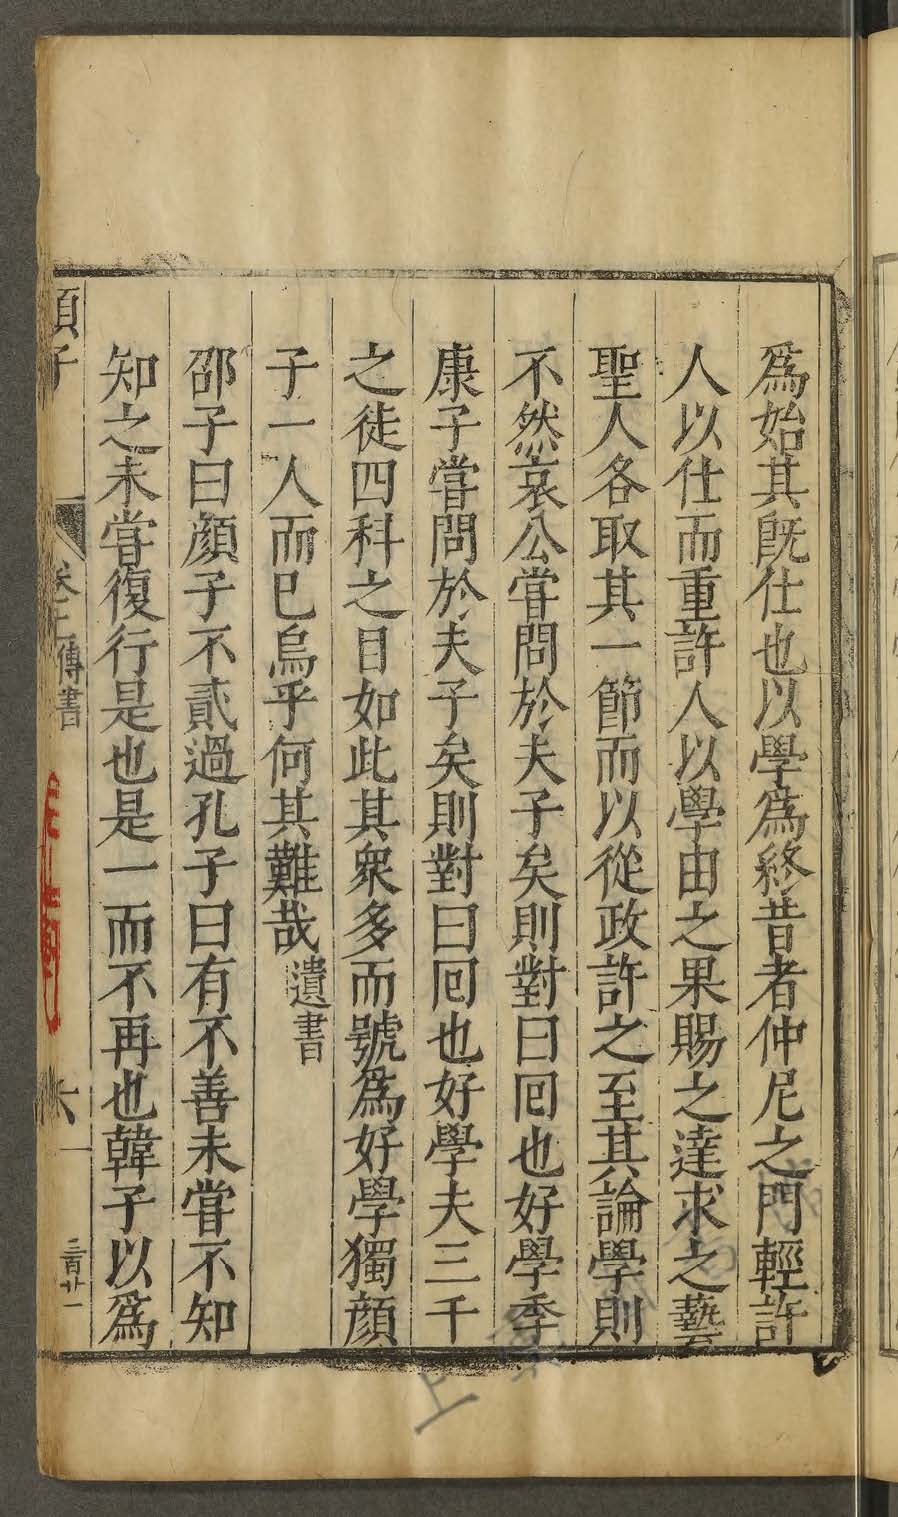 爲始其旣仕也以學爲終昔者仲尼之門輕許
人以仕而重許人以學由之果賜之達求之藝
聖人各取其一節而以從政許之至其論學則
不然哀公嘗問於夫子矣則對曰囘也好學季
康子嘗問於夫子矣則對曰囘也好學夫三千
之徒四科之目如此其衆多而號爲好學獨顔
子一人而已烏乎何其難哉遺書
邵子曰顔子不貳過孔子曰有不善未嘗不知
知之未嘗復行是也是一而不再也韓子以爲
子
傳書
六
三百廿一
上